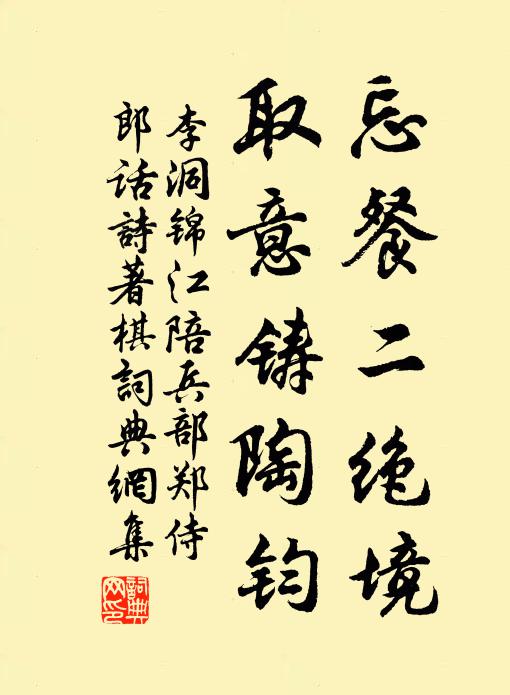 忘餐二绝境
取意铸陶钧
李洞锦江陪兵部郑侍
郎话詩著棋詞典網集
詞典网印